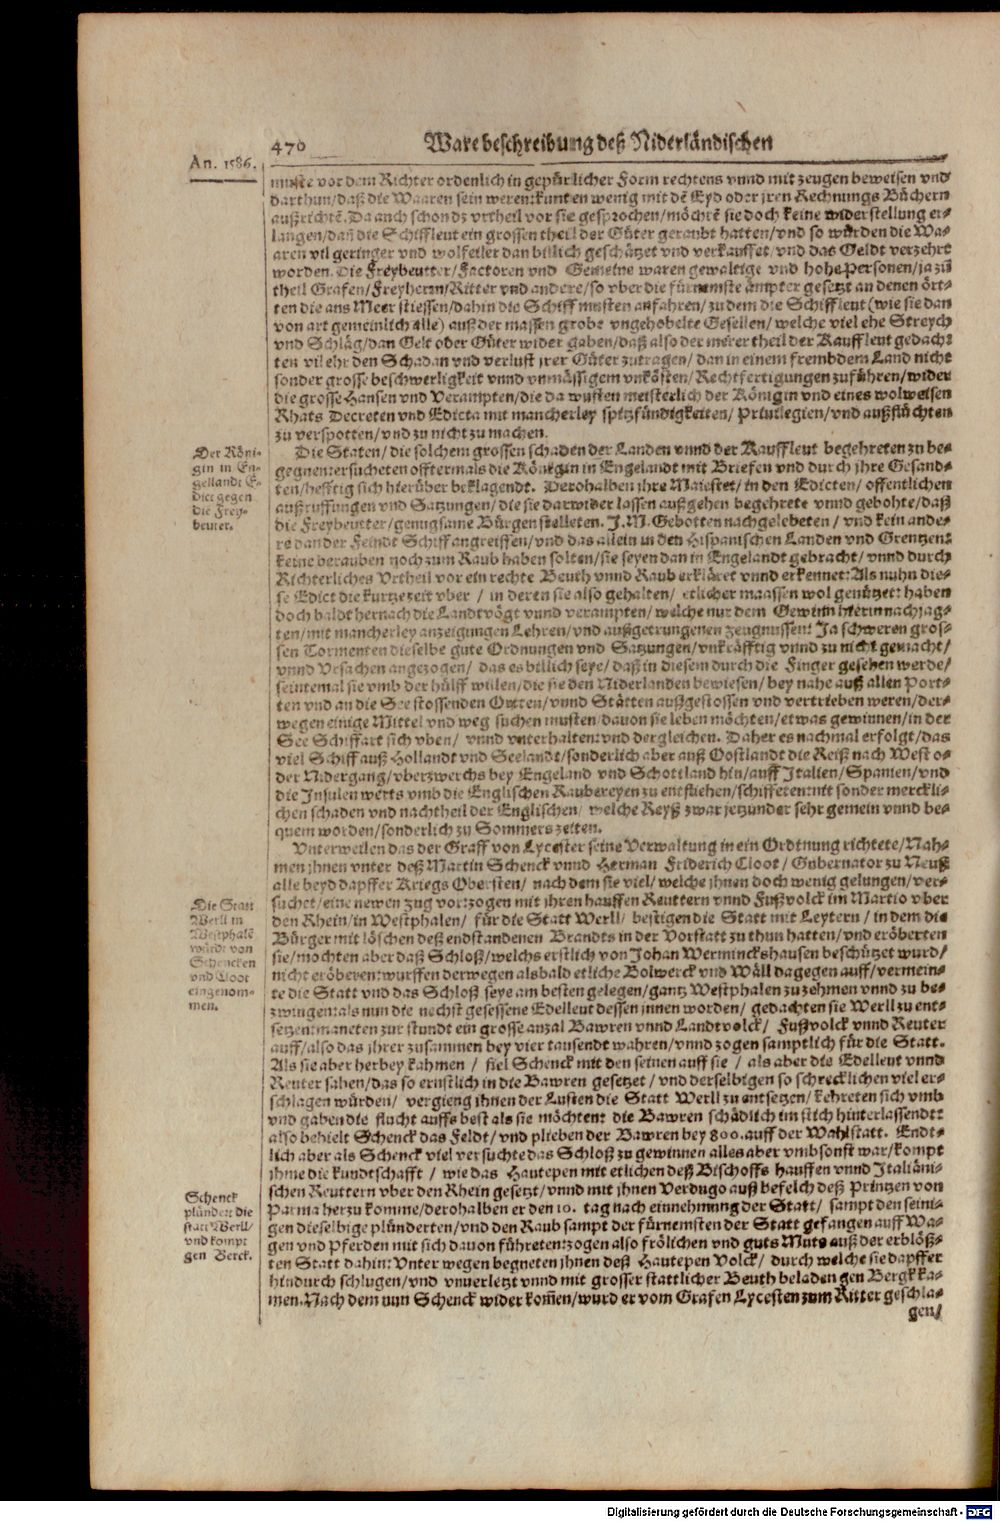 470 Ware beschreibung deß Niderländischen
An. 1586.
muste vor dem Richter ordenlich in gepürlicher Form rechtens vnnd mit zeugen beweisen vnd
darthun/daß die Waaren sein weren: kunten wenig mit dē Eyd oder jren Rechnungs Büchern
außrichtē. Da auch schon dz vrtheil vor sie gesprochen/möchtē sie doch keine widerstellung er-
langen/dañ die Schiffleut ein grossen theil der Güter geraubt hatten/vnd so würden die Wa-
aren vil geringer vnd wolfeiler dan billich geschätzet vnd verkauffet/vnd das Geldt verzehrt
worden. Die Freybeutter/Factoren vnd Gemeine waren gewaltige vnd hohe Personen/ja zū
theil Grafen/Freyherrn/Ritter vnd andere/so vber die fürnemste ämpter gesetzt an denen ört-
ten die ans Meer stiessen/dahin die Schiff musten anfahren/zu dem die Schiffleut (wie sie dan
von art gemeinlich alle) auß der massen grobe vngehobelte Gesellen/welche viel ehe Streych
vnd Schläg/dan Gelt oder Güter wider gaben/daß also der merer theil der Kauffleut gedach-
ten vil ehr den Schadan vnd verlust jrer Güter zutragen/dan in einem frembdem Land nicht
sonder grosse beschwerligkeit vnnd vnmässigem vnkösten/Rechtfertigungen zuführen/wider
die grosse Hansen vnd Verampten/die da wusten meisterlich der Königin vnd eines wolweisen
Rhats Decreten vnd Edicta mit mancherley spitzfündigkeiten/Priuilegien/vnd außflüchten
zu verspotten/vnd zu nicht zu machen.
Der Köni-
gin in En-
gellandt E-
dict gegen
die Frey-
beuter.
Die Staten/die solchem grossen schaden der Landen vnnd der Kauffleut begehreten zu be-
gegnen: ersucheten offtermals die Königin in Engelandt mit Briefen vnd durch jhre Gesand-
ten/hefftig sich hierüber beklagendt. Derohalben jhre Maiestet/in den Edicten/offentlichen
außruffungen vnd Satzungen/die sie darwider lassen außgehen begehrete vnnd gebohte/daß
die Freybeutter/genugsame Bürgen stelleten. J. M. Gebotten nachgelebeten/vnd kein ande-
re dan der Feindt Schiff angreiffen/vnd das allein in den Hispanischen Landen vnd Grentzen:
keine berauben noch zum Raub haben solten/sie seyen dan in Engelandt gebracht/vnnd durch
Richterliches Vrtheil vor ein rechte Beuth vnnd Raub erkläret vnnd erkennet: Als nuhn die-
se Edict die kurtze zeit vber/in deren sie also gehalten/etlicher maassen wol genützet: haben
doch baldt hernach die Landtvögt vnnd verampten/welche nur dem Gewinn hierin nachjag-
ten/mit mancherley anzeigungen Lehren/vnd außgetrungenen zeugnussen: Ja schweren gros-
sen Tormenten dieselbe gute Ordnungen vnd Satzungen/vnkräfftig vnnd zu nicht gemacht/
vnnd Vrsachen angezogen/das es billich seye/daß in diesem durch die Finger gesehen werde/
seintemal sie vmb der hülff willen/die sie den Niderlanden bewiesen/bey nahe auß allen Port-
ten vnd an die See stossenden Orten/vnnd Stätten außgestossen vnd vertrieben weren/der-
wegen einige Mittel vnd weg suchen musten/dauon sie leben möchten/etwas gewinnen/in der
See Schiffart sich vben/vnnd vnterhalten: vnd dergleichen. Daher es nachmal erfolgt/das
viel Schiff auß Hollandt vnd Seelandt/sonderlich aber auß Oostlandt die Reiß nach West o-
der Nidergang/vberzwerchs bey Engeland vnd Schottland hin/auff Italien/Spanien/vnd
die Insulen werts vmb die Englischen Raubereyen zu entfliehen/schiffeten: nit sonder merckli-
chen schaden vnd nachtheil der Englischen/welche Reyß zwar jetzunder sehr gemein vnnd be-
quem worden/sonderlich zu Sommers zeiten.
Vnterweilen das der Graff von Lycester seine Verwaltung in ein Ordtnung richtete/Nah-
men jhnen vnter deß Martin Schenck vnnd Herman Friderich Cloot/Gubernator zu Neuß
alle beyd dapffer Kriegs Obersten/nach dem sie viel/welche jhnen doch wenig gelungen/ver-
Die Statt
Werll in
Westphalē
würdt von
Schencken
vnd Cloot
eingenom-
men.
suchet/eine newen zug vor: zogen mit jhren hauffen Reuttern vnnd Fußvolck im Martio vber
den Rhein/in Westphalen/für die Statt Werll/bestigen die Statt mit Leytern/in dem die
Bürger mit löschen deß endstandenen Brandts in der Vorstatt zu thun hatten/vnd eröberten
sie/mochten aber daß Schloß/welchs erstlich von Johan Werminckshausen beschützet wurd/
nicht eröberen: wurffen derwegen alsbald etliche Bolwerck vnd Wäll dagegen auff/vermein-
te die Statt vnd das Schloß seye am besten gelegen/gantz Westphalen zu zehmen vnnd zu be-
zwingen: als nun die nechst gesessene Edelleut dessen jnnen worden/gedachten sie Werll zu ent-
setzen: maneten zur stundt ein grosse anzal Bawren vnnd Landtvolck/Fußvolck vnnd Reuter
auff/also das jhrer zusammen bey vier tausendt wahren/vnnd zogen samptlich für die Statt.
Als sie aber herbey kahmen/fiel Schenck mit den seinen auff sie/als aber die Edelleut vnnd
Reuter sahen/das so ernstlich in die Bawren gesetzet/vnd derselbigen so schrecklichen viel er-
schlagen würden/vergieng jhnen der Lusten die Statt Werll zu entsetzen/kehreten sich vmb
vnd gaben die flucht auffs best als sie möchten: die Bawren schädlich im stich hinterlassendt:
also behielt Schenck das Feldt/vnd plieben der Bawren bey 800. auff der Wahlstatt. Endt-
lich aber als Schenck viel versuchte das Schloß zu gewinnen alles aber vmbsonst war/kompt
jhme die kundtschafft/wie das Hautepen mit etlichen deß Bischoffs hauffen vnnd Italiäni-
Schenck
plündert die
statt Werll/
vnd kompt
gen Berck.
schen Reuttern vber den Rhein gesetzt/vnnd mit jhnen Verdugo auß befelch deß Printzen von
Parma herzu komme/derohalben er den 10. tag nach einnehmung der Statt/sampt den seini-
gen dieselbige plünderten/vnd den Raub sampt der fürnemsten der Statt gefangen auff Wa-
gen vnd Pferden mit sich dauon führeten: zogen also frölichen vnd guts Muts auß der erblöß-
ten Statt dahin: Vnter wegen begneten jhnen deß Hautepen Volck/durch welche sie dapffer
hindurch schlugen/vnd vnuerletzt vnnd mit grosser stattlicher Beuth beladen gen Bergk ka-
men. Nach dem nun Schenck wider kom̄en/wurd er vom Grafen Lycesten zum Ritter geschla-
gen/
Digitalisierung gefördert durch die Deutsche Forschungsgemeinschaft - DFG